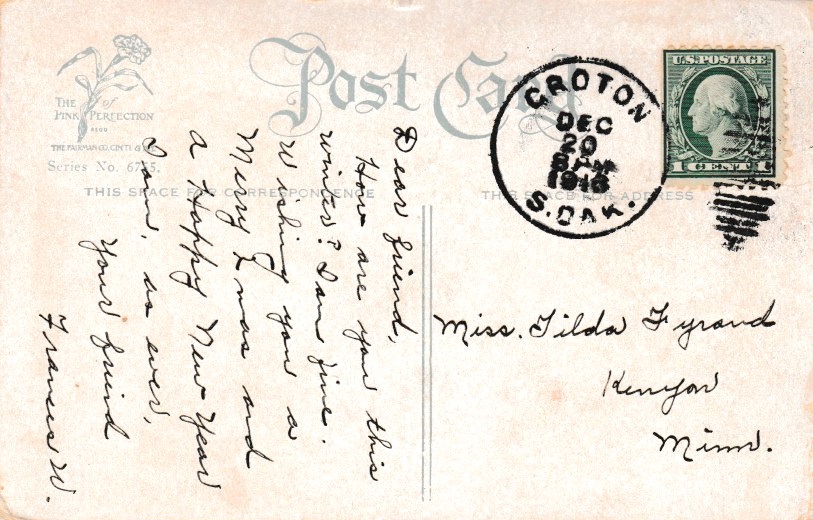 Post Card
THE of
PINK PERFECTION
THE FAIRMAN CO. CIN'TI & N.Y.
Series No. 6755.
THIS SPACE FOR CORRESPONDENCE
THIS SPACE FOR ADDRESS
Dear friend,
How are you this
winter? I am fine.
Wishing you a
Merry Xmas and
a Happy New Year
I am, as ever,
Your friend
Frances W.
GROTON
DEC
20
8 AM
S. DAK.
U.S. POSTAGE
1 CENT 1
Miss. Tilda Fyrand
Kenyon
Minn.